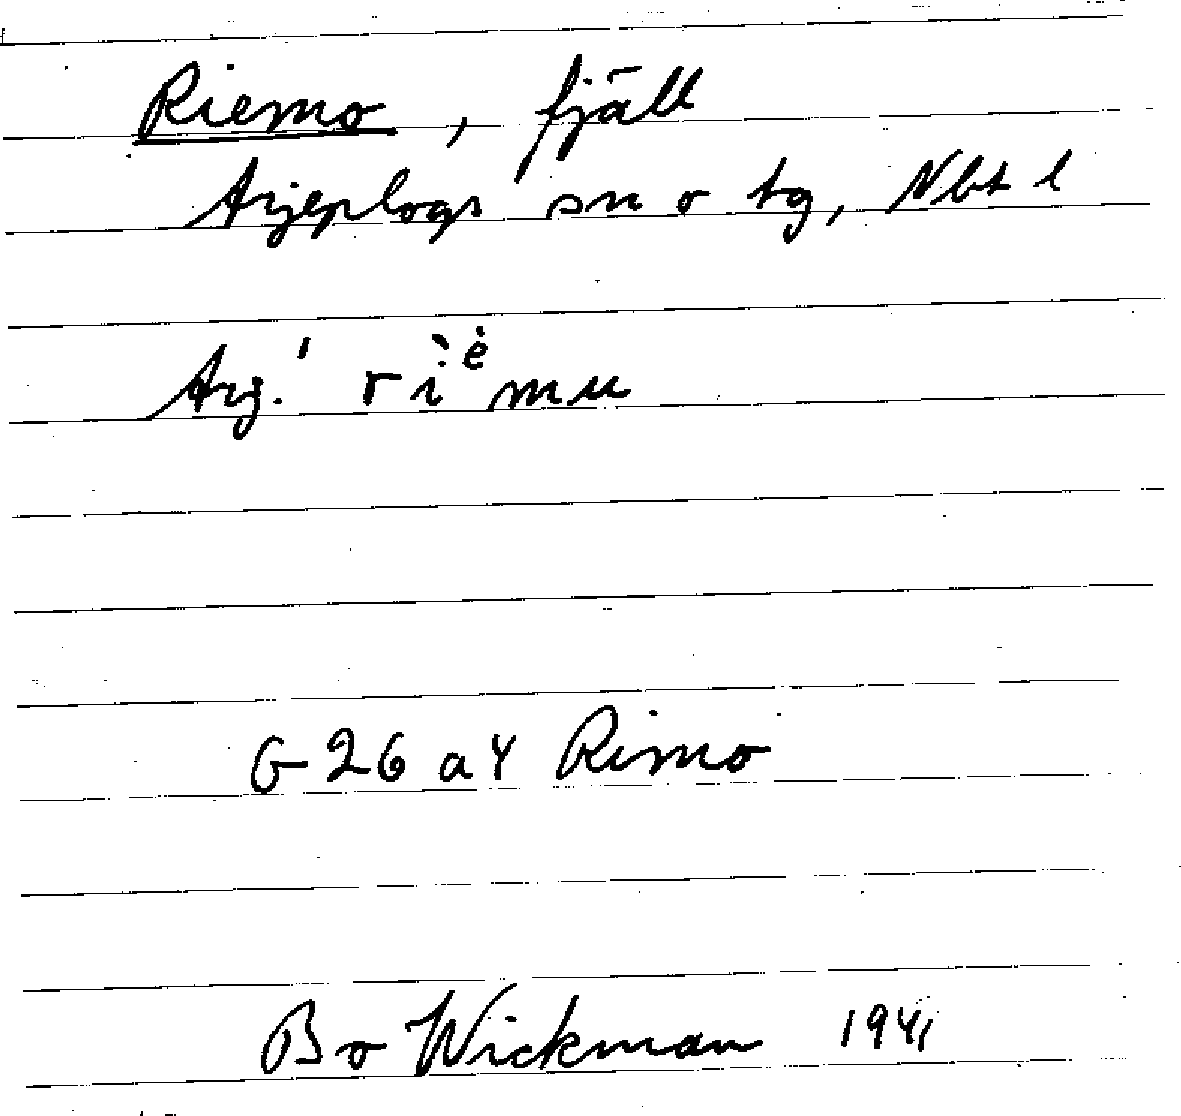 Riemo, fjäll
Arjeplogs sn o tg, Nbt l
Arj. ' rì̀ᵉ̇mu
G 26 a Y Rimo
Bo Wickman 1941